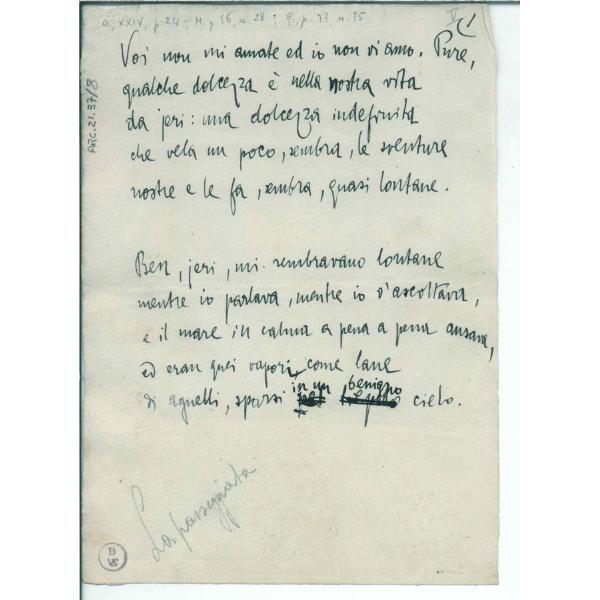 a, XXIV, p. 24 - M. p. 16, n. 28 ; p. 73, n. 75
V
ARC.21.37/8
Voi non mi amate ed io non vi amo. Pure,
qualche dolcezza è nella nostra vita
da jeri: una dolcezza indefinita
che vela un poco, sembra, le sventure
nostre e le fa, sembra, quasi lontane.
Ben, jeri, mi sembravano lontane
mentre io parlava, mentre io v'ascoltava,
e il mare in calma a pena a pena ansava,
ed eran quei vapori come lane
di agnelli, sparsi in un benigno cielo.
La passeggiata
B